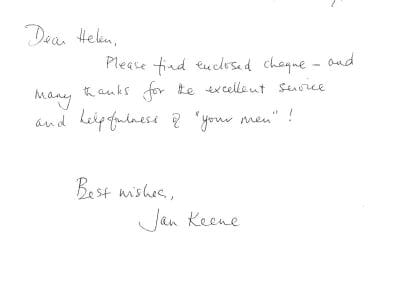 Dear Helen,
Please find enclosed cheque - and
many thanks for the excellent service
and helpfulness of "your men"!
Best wishes,
Jan Keene